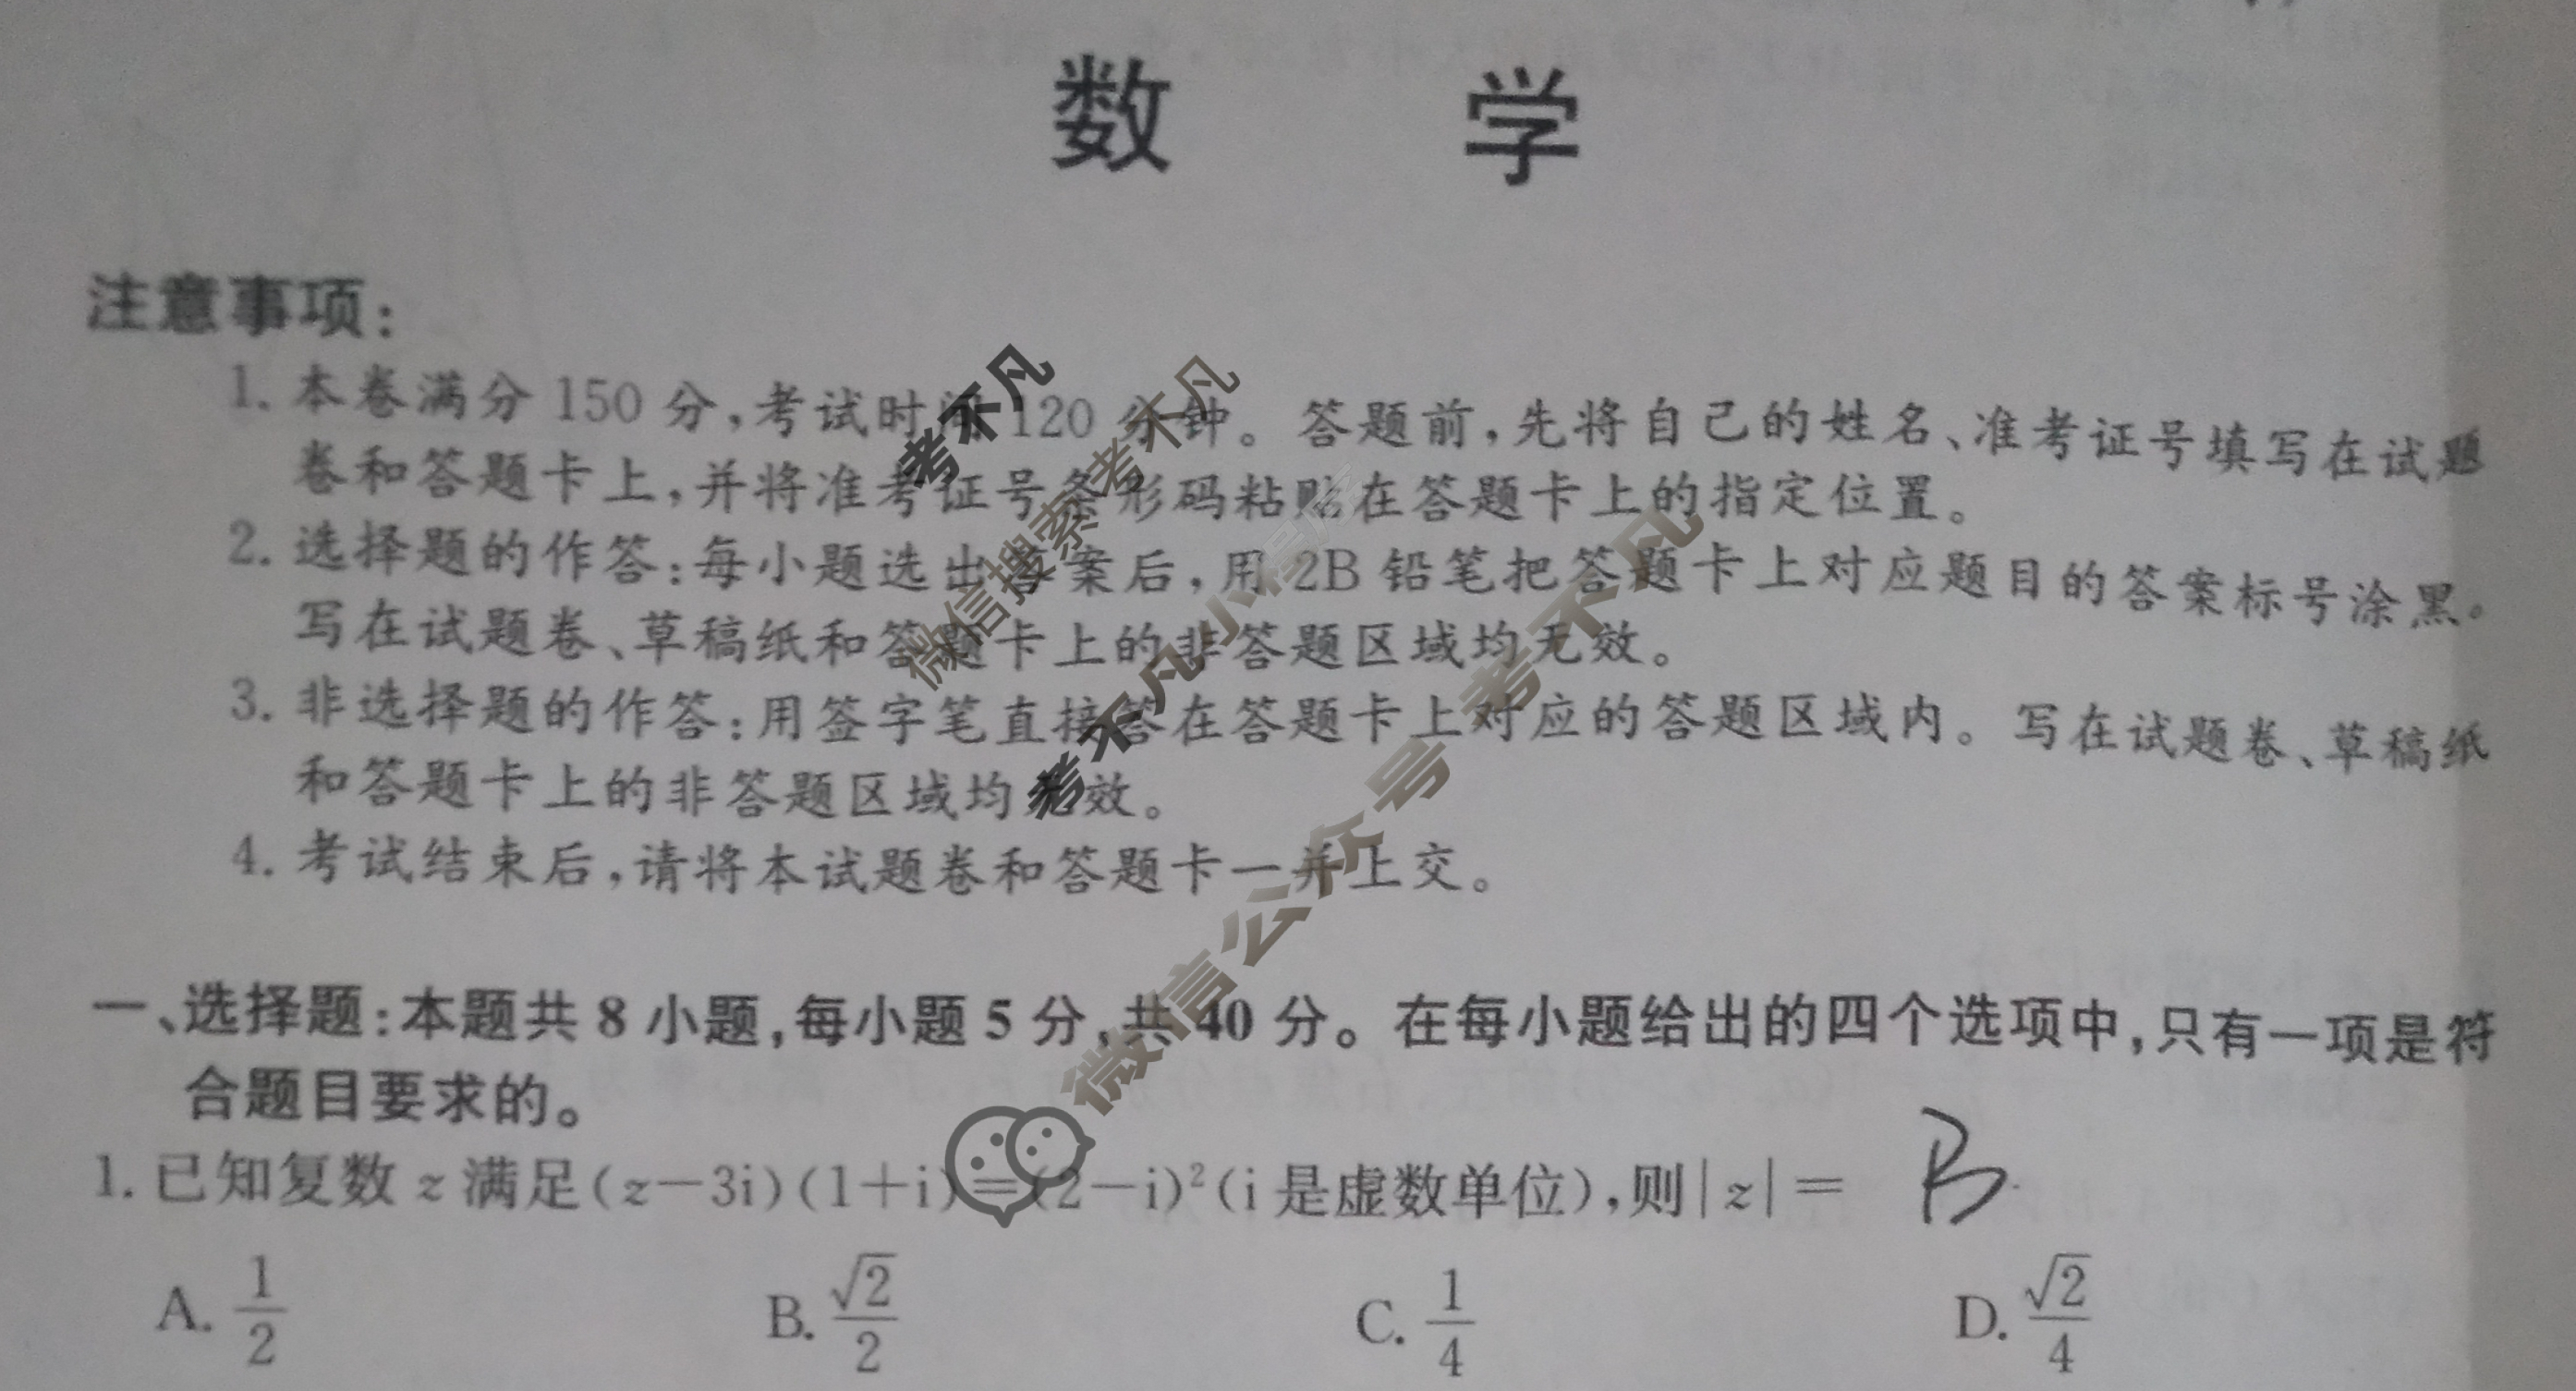 数 学
注意事项:
1. 本卷满分 150 分,考试时间 120 分钟。答题前,先将自己的姓名、准考证号填写在试题
卷和答题卡上,并将准考证号条形码粘贴在答题卡上的指定位置。
2. 选择题的作答:每小题选出答案后,用 2B 铅笔把答题卡上对应题目的答案标号涂黑。
写在试题卷、草稿纸和答题卡上的非答题区域均无效。
3. 非选择题的作答:用签字笔直接答在答题卡上对应的答题区域内。写在试题卷、草稿纸
和答题卡上的非答题区域均无效。
4. 考试结束后,请将本试题卷和答题卡一并上交。
一、选择题:本题共 8 小题,每小题 5 分,共 40 分。在每小题给出的四个选项中,只有一项是符
合题目要求的。
1. 已知复数 z 满足(z-3i)(1+i)=(2-i)²(i 是虚数单位),则|z|= B
A. 1/2 B. √2/2 C. 1/4 D. √2/4
考不凡
微信搜索考不凡
考不凡小程序
微信公众号 考不凡